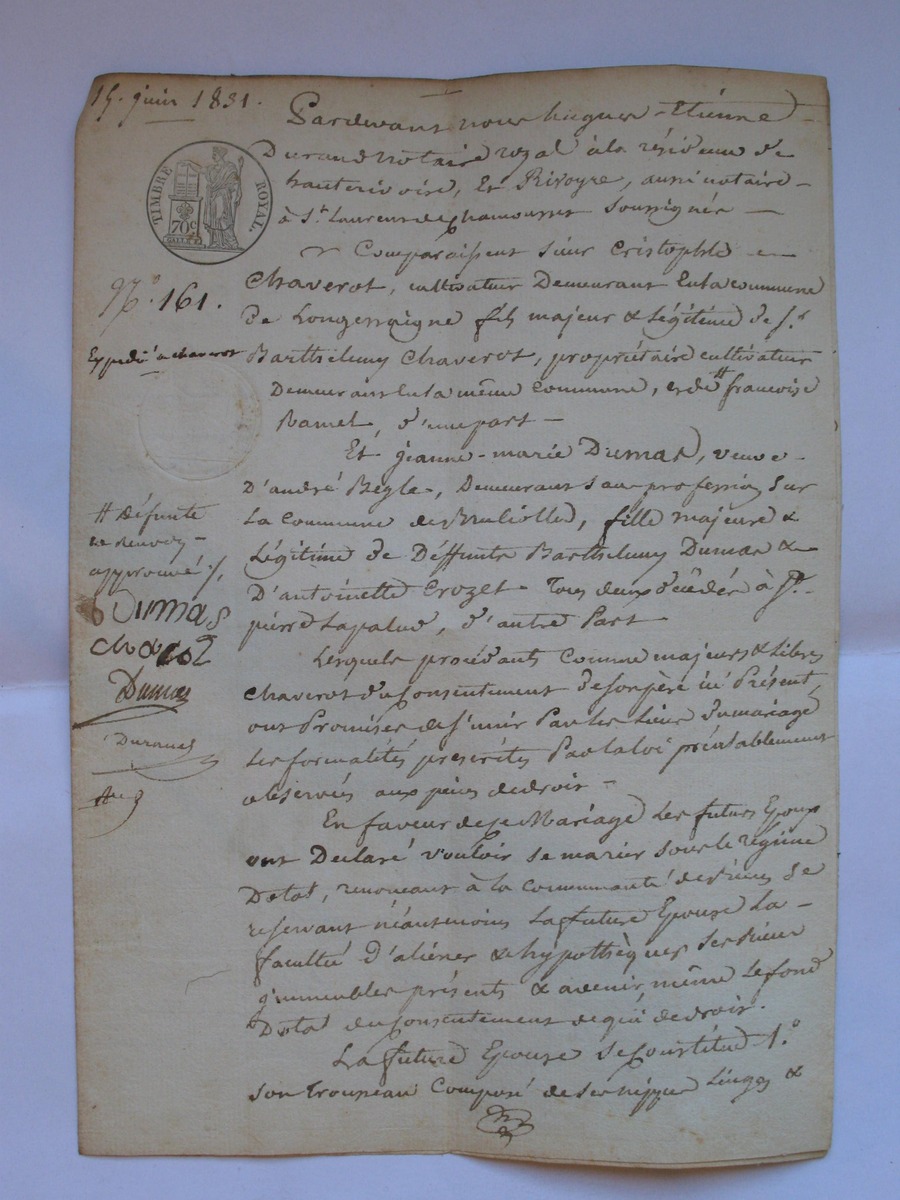 15. juin 1831.
TIMBRE ROYAL.
70 c
N.° 161.
Expédié à chaverot
# défunte
ce renvoy
approuvé ./.
Dumas
Dumas
Durand
Pardevant nous hugues Etienne
Durand notaire royal à la résidence de
hauterivoire, Et Rivoyre, aussi notaire
à St. Laurent de Chamousset soussignés
Comparaissent sieur Cristophle
Chaverot, cultivateur Demeurant En la commune
de Longessaigne fils majeur & légitime de Sr.
Barthelemy Chaverot, propriétaire cultivateur
Demeurant En la même commune, et de # francoise
Ramel, d'une part
Et jeanne-marie Dumas, veuve
D'andré Bégle, Demeurant sans profession sur
La Commune de Brullolles, fille majeure &
Légitime de Deffunts Barthelemy Dumas &
D'antoinette Crozet Tous deux décédés à St.
pierre Lapalud, d'autre Part
Lesquels procédants comme majeurs & libres
Chaverot du Consentement de son père ici Présent,
ont Promis de s'unir Par les Liens du mariage
Les formalités prescrites Par la loi préalablement
observées aux peines de droit
En faveur de ce Mariage Les futurs Epoux
ont Déclaré vouloir se marier sous le régime
Dotal, renonceant à la communauté de biens se
reservant néantmoins La future Epouse La
faculté D'aliéner & hypothèquer ses biens
immeubles présents & avenir, même Le fond
Dotal du Consentement de qui de droit.
La future Epouse se Constitue 1.°
son Trousseau Composé de ses nippes Linges &